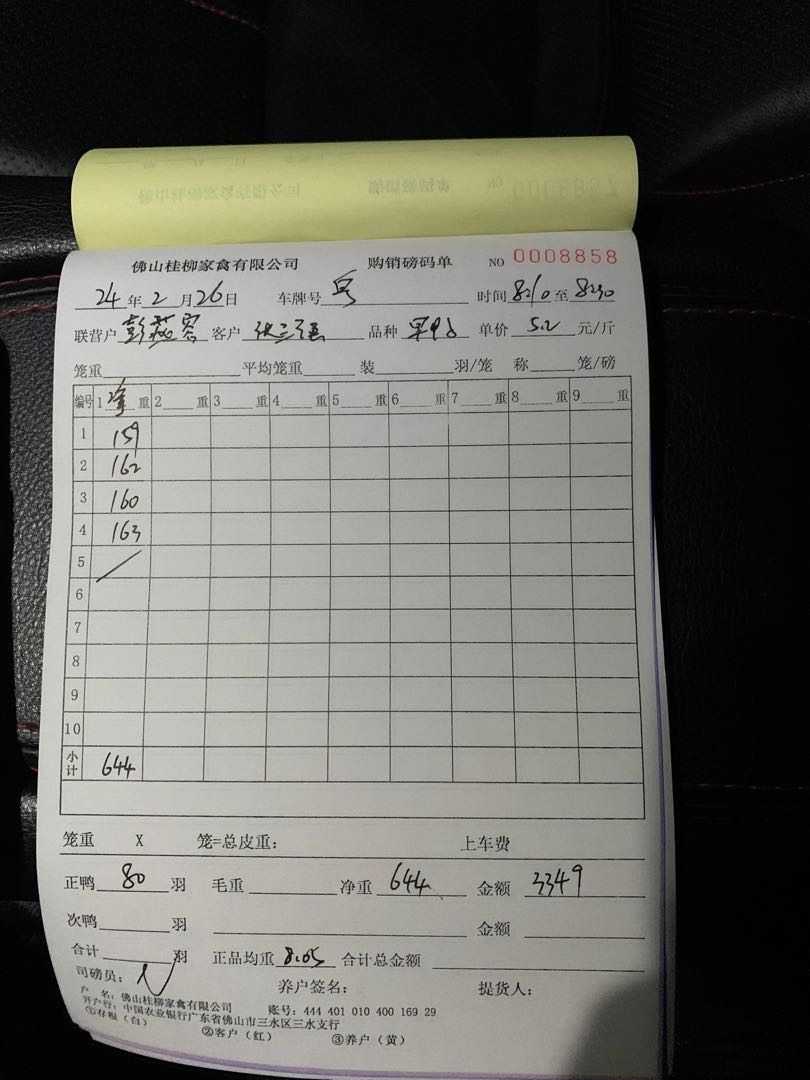 佛山桂柳家禽有限公司 购销磅码单 NO 0008858
24年2月26日 车牌号 时间 8210至8230
联营户 彭燕容 客户 张三强 品种 单价 5.2 元/斤
笼重 平均笼重 装 羽/笼 称 笼/磅
编号 1 净 重 2 重 3 重 4 重 5 重 6 重 7 重 8 重 9 重
1 159
2 162
3 160
4 163
5
6
7
8
9
10
小计 644
笼重 X 笼=总皮重: 上车费
正鸭 80 羽 毛重 净重 644 金额 3349
次鸭 羽 金额
合计 羽 正品均重 8.05 合计总金额
司磅员: 养户签名: 提货人:
户 名: 佛山桂柳家禽有限公司 账号: 444 401 010 400 169 29
开户行: 中国农业银行广东省佛山市三水区三水支行
①存根(白) ②客户(红) ③养户(黄)